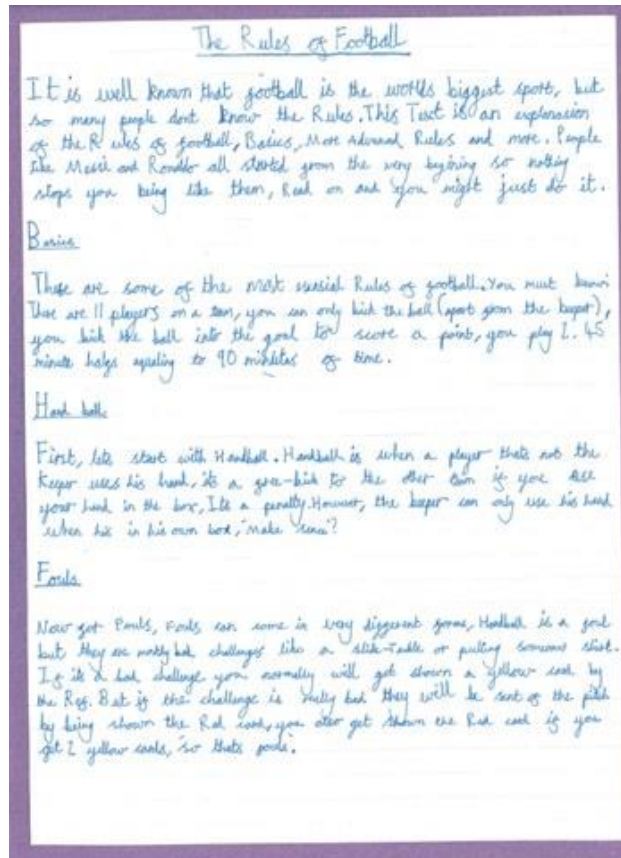 The Rules of Football
It is well known that football is the worlds biggest sport, but
so many people dont know the Rules. This Text is an explanasion
of the Rules of football, Basics, More Advanced Rules and more. People
like Messi and Ronaldo all started from the very begining so nothing
stops you being like them, Read on and you might just do it.
Basics
These are some of the most esensial Rules of football. You must know
There are 11 players on a team, you can only kick the ball (apart from the keeper),
you kick the ball into the goal to score a point, you play 2. 45
minute halfs equaling to 90 minutes of time.
Hand ball
First, lets start with Handball. Handball is when a player thats not the
Keeper uses his hand, its a free-kick to the other team if you use
your hand in the box, Its a penalty. However, the keeper can only use his hand
when his in his own box, make sence?
Fouls
Now for Fouls, Fouls can come in very different forms, Handball is a foul
but they are mostly bad challenges like a slide-tackle or pulling someones shirt.
If its a bad challenge you normally will get shown a yellow card by
the Ref. But if the challenge is really bad they will be sent of the pitch
by being shown the Red card, you also get shown the Red card if you
get 2 yellow cards, so thats fouls.